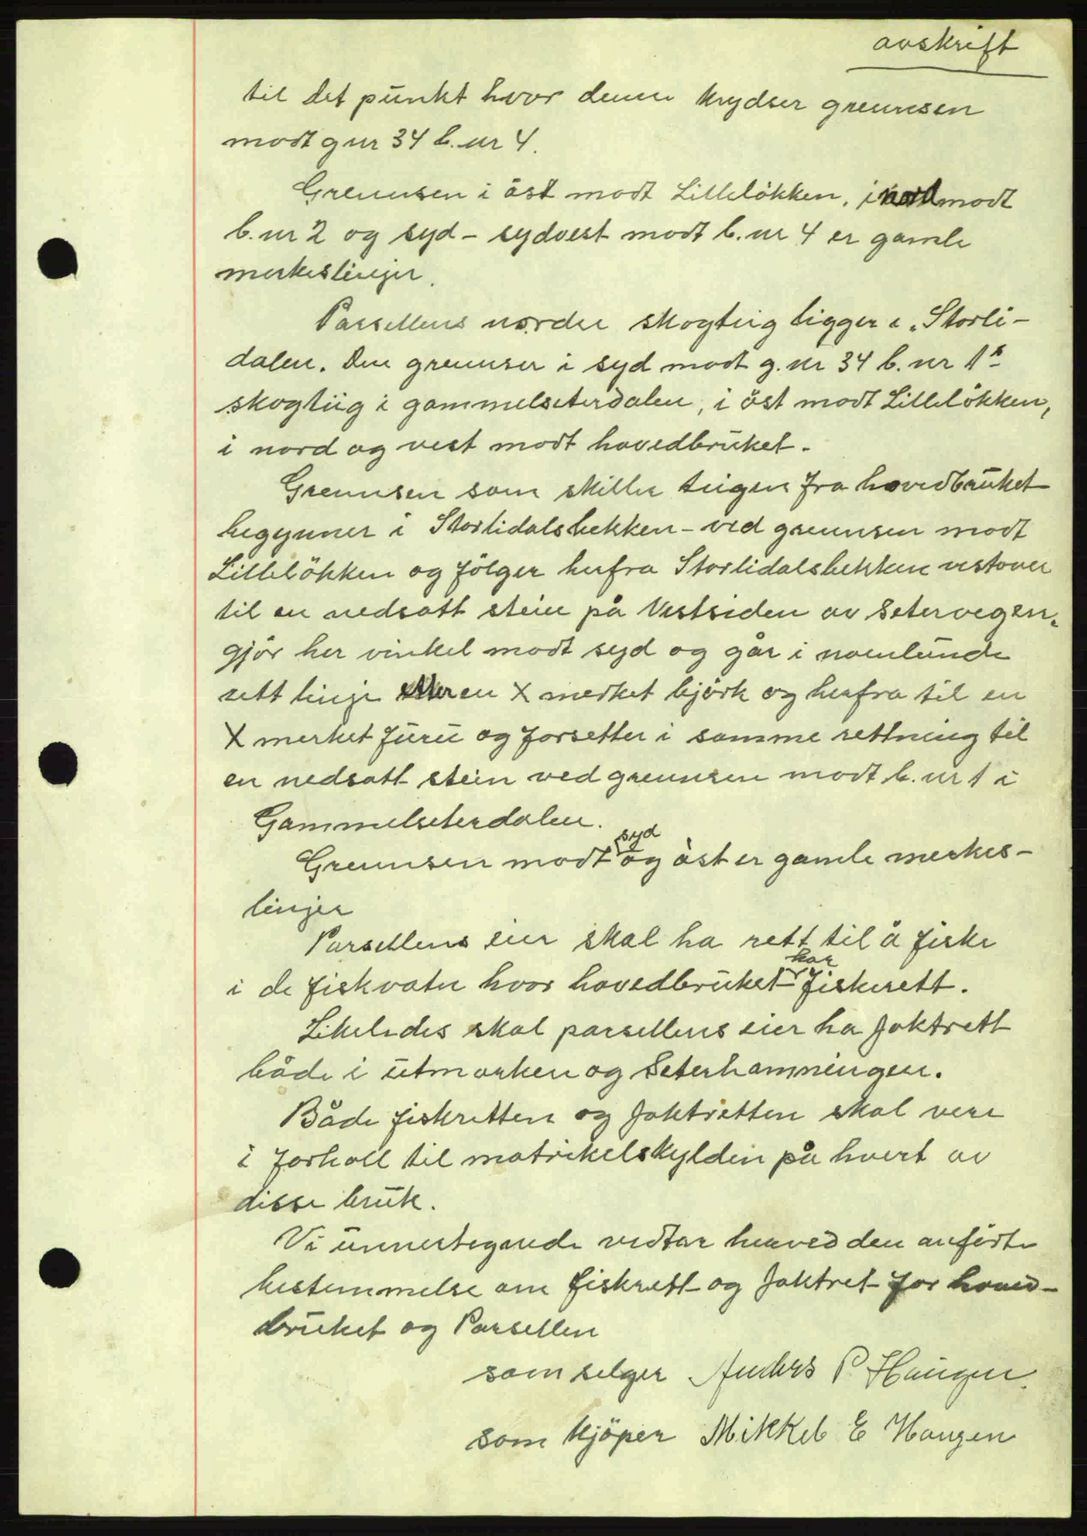 avskrift
til det punkt hvor denne krydser grennsen
modt gnr 34 b. nr 4.
Grennsen i öst modt Lilleløkken, i nord modt
b. nr 2 og syd - sydvest modt b. nr 4 er gamle
merkeslinjer.
Parsellens nordre skogteig ligger i "Storli-
dalen. Den grennser i syd modt g. nr 34 b. nr 1s
skogteig i gammelseterdalen, i öst modt Lilleløkken,
i nord og vest modt hovedbruket.
Grennsen som skiller teigen fra hovedbruket
begynner i Storlidalsbekken - ved grennsen modt
Lilleløkken og følger herfra Storlidalsbekken vestover
til en nedsatt stein på Vestsiden av Setervegen.
gjør her vinkel modt syd og går i noenlunde
rett linje en X merket bjørk og herfra til en
X merket furu og forsetter i samme rettning til
en nedsatt stein ved grennsen modt b. nr 1 i
Gammelseterdalen.
Grennsen modt syd og öst er gamle merkes-
linjer
Parsellens eier skal ha rett til å fiske
i de fiskvatn hvor hovedbruket har fiskerett.
Likeledes skal parsellens eier ha Jaktrett
både i utmarken og Seterhamningen.
Både fiskretten og Jaktretten skal vere
i forholl til matrikelskylden på hvert av
disse bruk.
Vi unnertegnede vedtar herved den anførte
bestemmelse om fiskrett og Jaktret for hoved-
bruket og Parsellen
som selger Anders P Haugen.
som kjöper Mikkel E Haugen